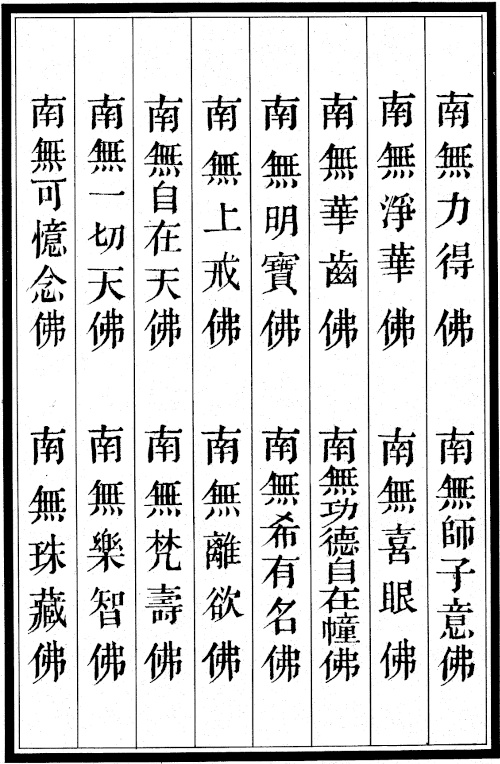 南無力得佛　南無師子意佛
南無淨華佛　南無喜眼佛
南無華齒佛　南無功德自在幢佛
南無明寶佛　南無希有名佛
南無上戒佛　南無離欲佛
南無自在天佛　南無梵壽佛
南無一切天佛　南無樂智佛
南無可憶念佛　南無珠藏佛